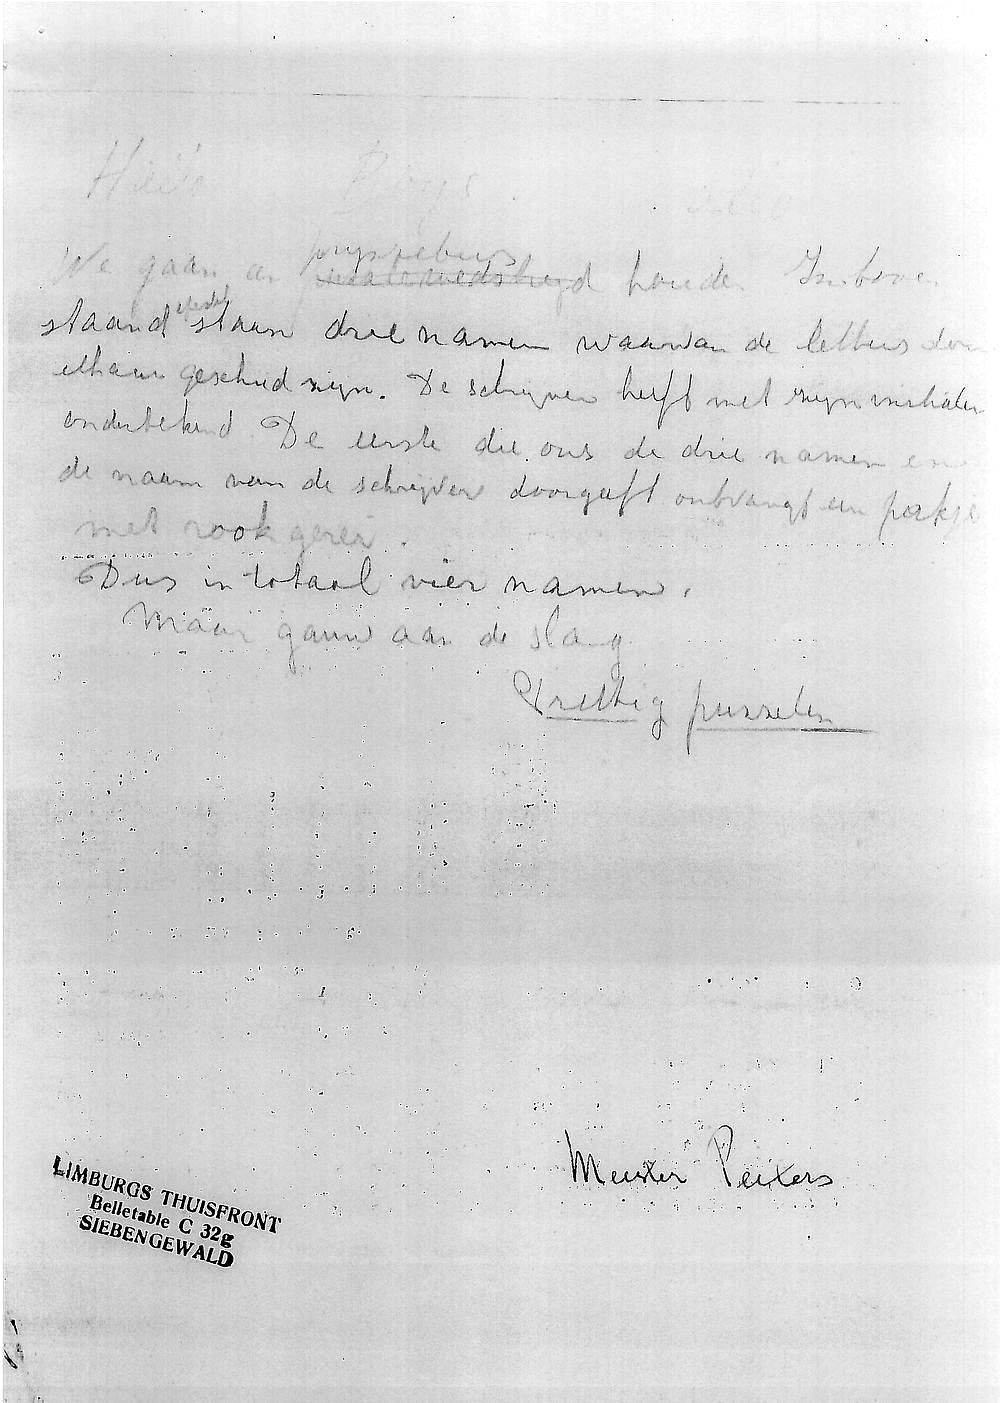 Boys
prijsrebus
We gaan en wedstreyd houden Inboven
staand staan drie namen waarvan de letters door
elkaar geschud zijn. De schrijver heeft met zijn initialen
ondertekend. De eerste die ons de drie namen en
de naam van de schrijver doorgeeft ontvangt een pakje
met rookgerei.
Dus in totaal vier namen.
Maar gauw aan de slang
Prettig puzzelen
Meister Peixers
LIMBURGS THUISFRONT
Belletable C 32g
SIEBENGEWALD